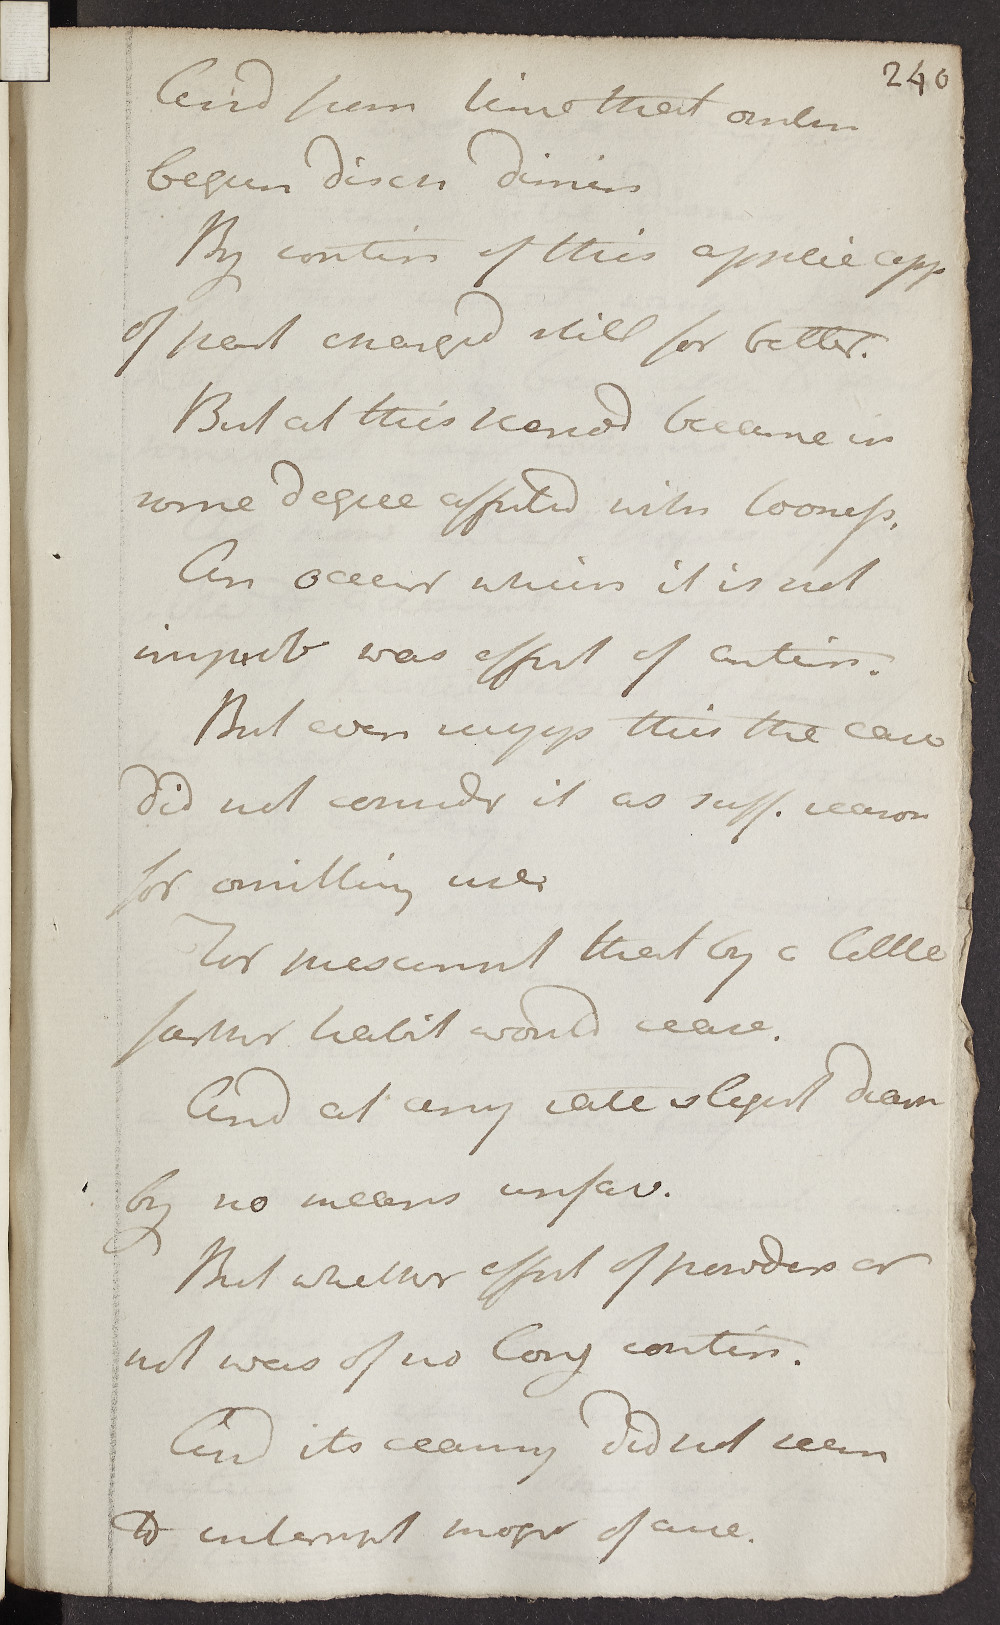 240
And from time that
begun disch dimin
By contin of this applic app
of part changed still for better.
But at this period became in
some degree affected with looness.
An occurr which it is not
improb was effect of antim.
But even supps this the case
did not consider it as suff. reason
for omitting use
For presumt that by a little
farther habit would cease.
And at any rate slight diarrh
by no means unfav.
But whether effect of powders or
not was of no long contin.
And its ceasing did not seem
to interrupt progr of cure.